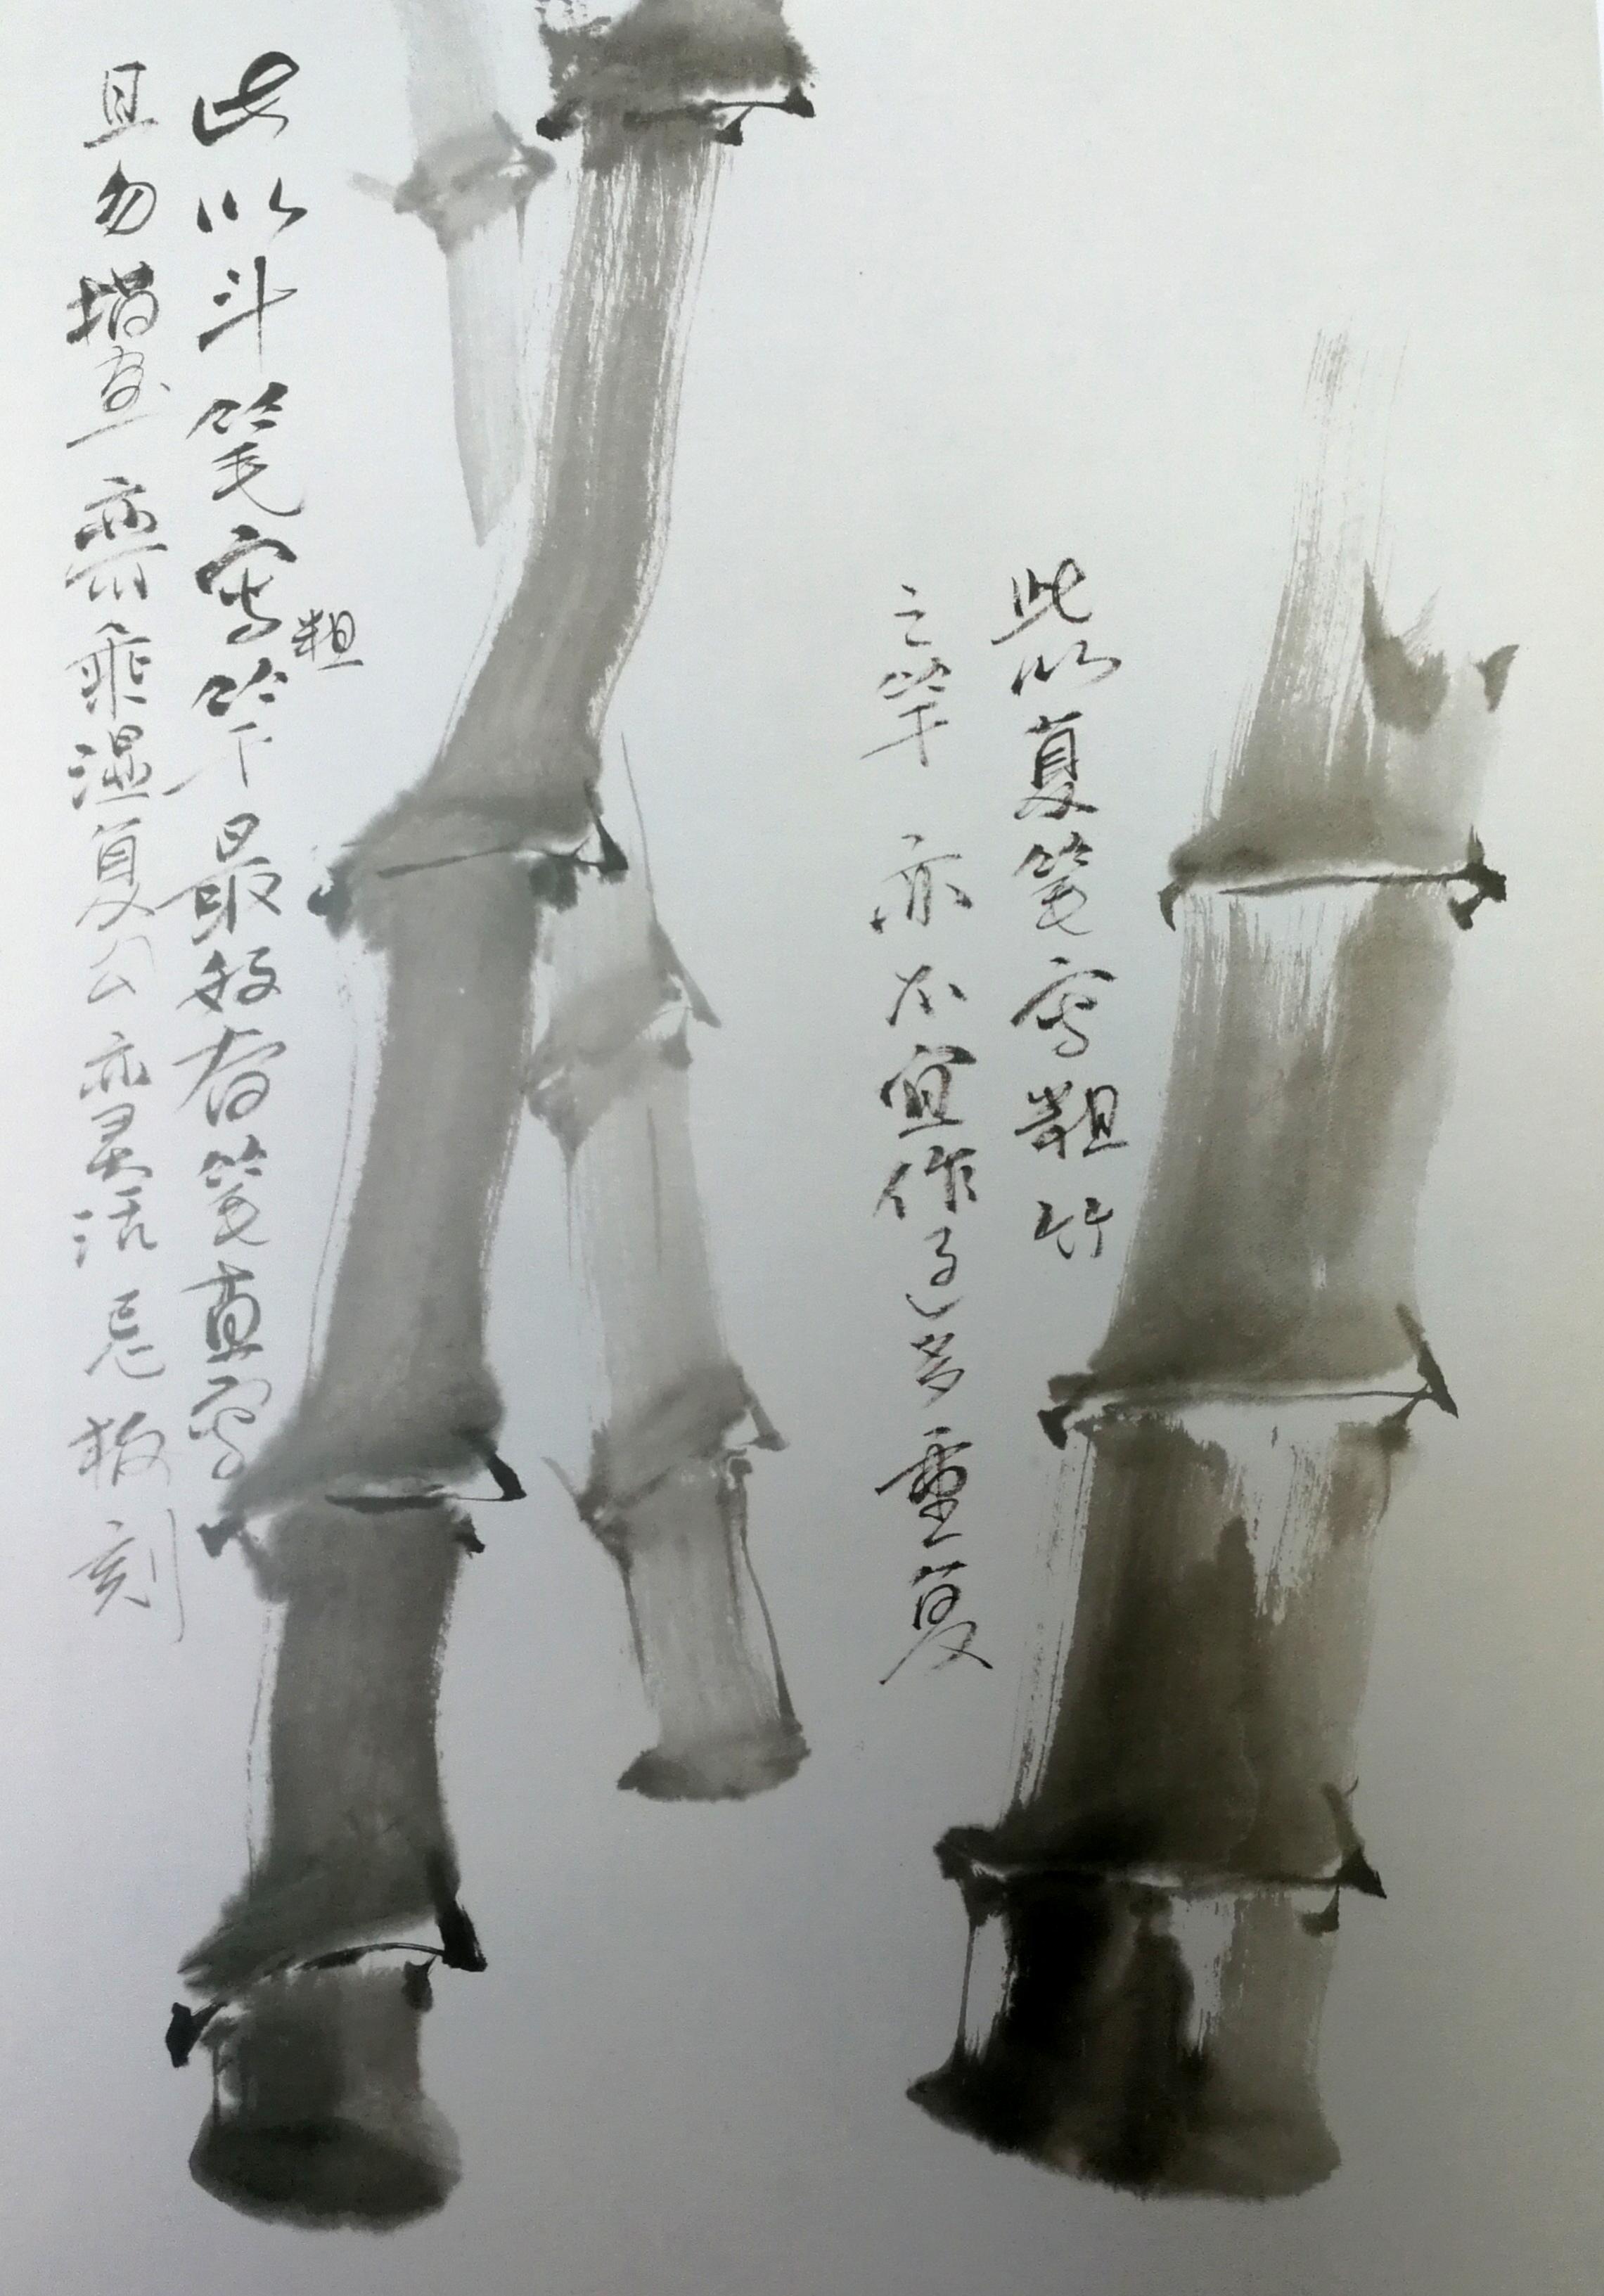 此以复笔写粗竹
之竿亦不宜作了多重复
此以斗笔写粗竿最好看笔直写
且勿塌画亦需乘湿复公亦灵活忌板刻